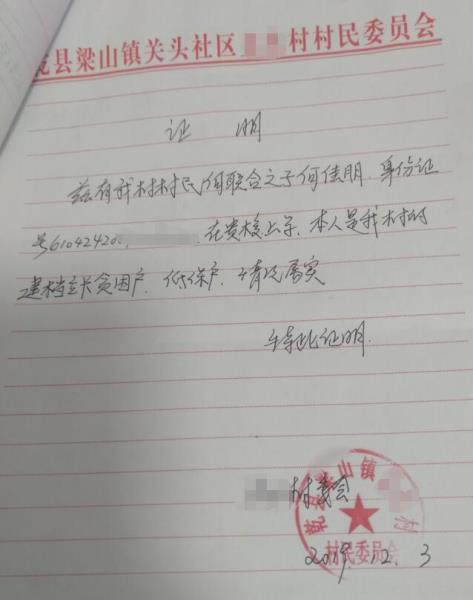 乾县梁山镇关头社区 村村民委员会
证 明
兹有我村村民何联合之子何佳朋、身份证
号61042420 在贵校上学、本人是我村的
建档立卡贫困户、低保户、情况属实
特此证明.
村委会
乾县梁山镇 村
村民委员会
2019.12.3